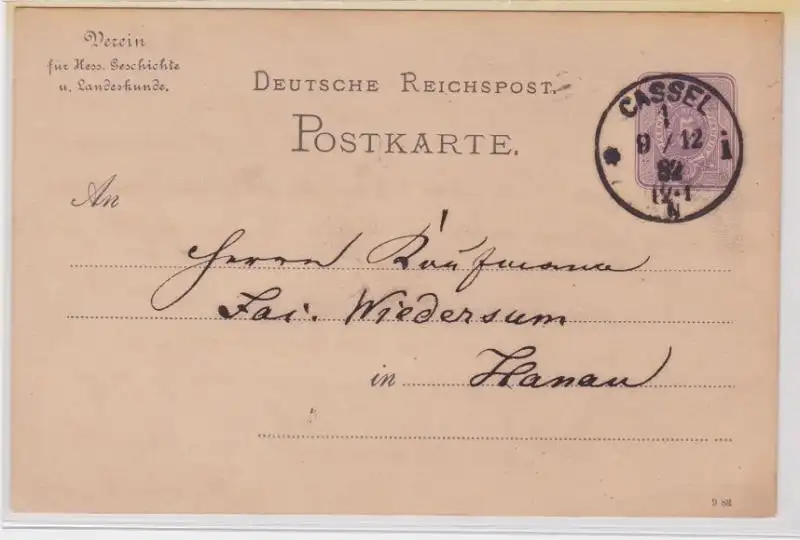 Verein
für Hess. Geschichte
u. Landeskunde.
DEUTSCHE REICHSPOST.
POSTKARTE.
CASSEL
1
9 / 12
82
12-1
N
* i
An
Herrn Kaufmann
Fai. Wiedersum
in Hanau
9 82